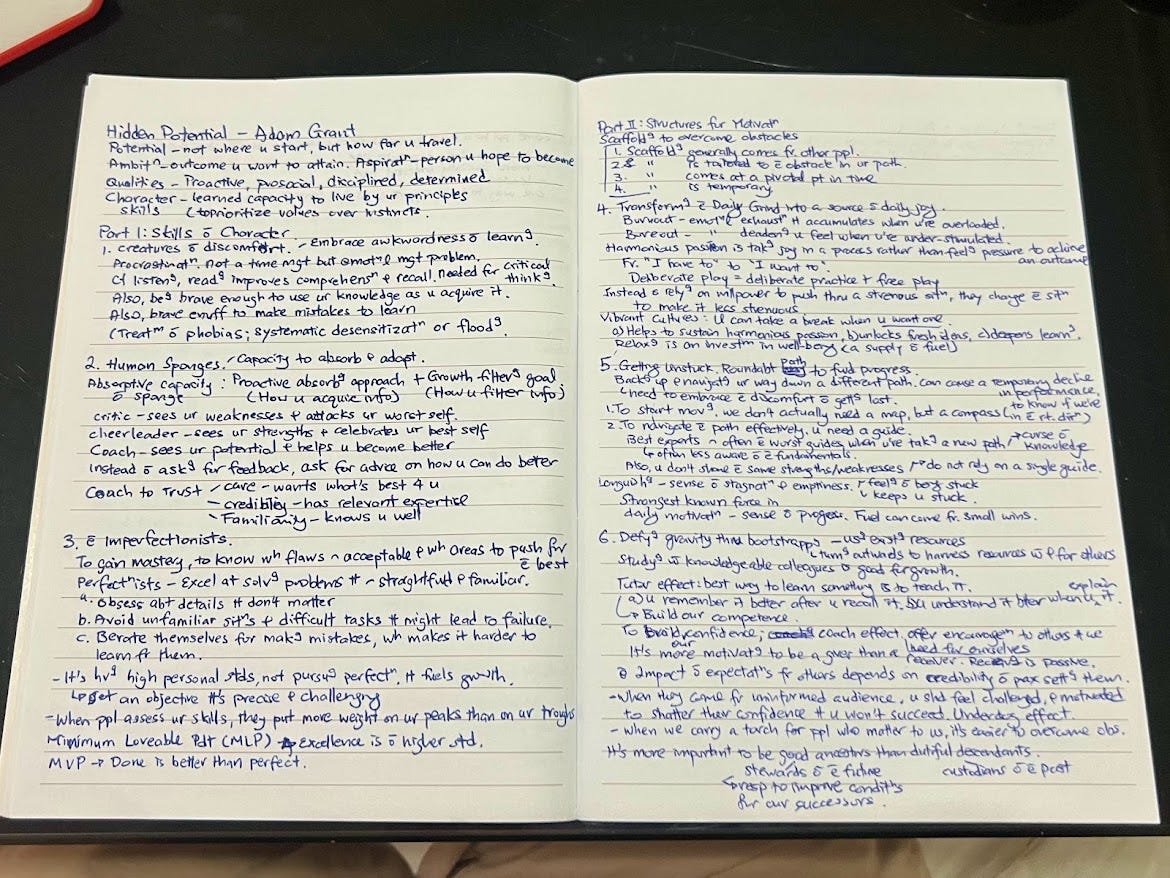 Hidden Potential – Adam Grant
Potential – not where u start, but how far u travel.
Ambitⁿ – outcome u want to attain. Aspiratⁿ – person u hope to become
Qualities – Proactive, prosocial, disciplined, determined
Character – learned capacity to live by ur principles
skills (to prioritize values over instincts.
Part 1: Skills ō Character
1. creatures ō discomfort. – Embrace awkwardness ō learnᵍ.
Procrastinatⁿ. not a time mgt but emotˡ mgt problem.
Cf listenᵍ, readᵍ improves comprehensⁿ & recall. needed for critical thinkᵍ.
Also, beᵍ brave enough to use ur knowledge as u acquire it.
Also, brave enuff to make mistakes to learn
(Treatᵐ ō phobias; systematic desensitizatⁿ or floodᵍ.
2. Human Sponges. – Capacity to absorb & adapt.
Absorptive capacity : Proactive absorbᵍ approach + Growth-filterᵍ goal
ō sponge (How u acquire info) (How u filter info)
critic – sees ur weaknesses & attacks ur worst self.
cheerleader – sees ur strengths & celebrates ur best self
Coach – sees ur potential & helps u become better
Instead ō askᵍ for feedback, ask for advice on how u can do better
Coach to Trust – care – wants what's best 4 u
– credibility – has relevant expertise
– Familiarity – knows u well
3. ē Imperfectionists.
To gain mastery, to know wh flaws ~ acceptable & wh areas to push for ē best
Perfectⁿists – Excel at solvᵍ problems tt ~ straightfwd & familiar.
a. Obsess abt details tt don't matter
b. Avoid unfamiliar sitⁿs & difficult tasks tt might lead to failure.
c. Berate themselves for makᵍ mistakes, wh makes it harder to
learn fr them.
– It's hvᵍ high personal stds, not pursuᵍ perfectⁿ. tt fuels growth.
↳ set an objective tt's precise & challengᵍ
– When ppl assess ur skills, they put more weight on ur peaks than on ur troughs
Minimum Loveable Pdt (MLP) → excellence is ō higher std.
MVP → Done is better than perfect.
Part II: Structures for Motivatⁿ
Scaffoldᵍ to overcome obstacles
1. Scaffoldᵍ generally comes fr. other ppl.
2. " is tailored to ē obstacle in ur path.
3. " comes at a pivotal pt in time
4. " is temporary
4. Transformᵍ ē Daily Grind into a source ō daily joy.
Burnout – emotˡ exhaustⁿ tt accumulates when u're overloaded.
Boreout – " deadenᵍ u feel when u're under-stimulated.
Harmonious passion is takᵍ joy in ē process rather than feelᵍ pressure to achieve an outcome
Fr. "I have to" to "I want to".
Deliberate play = deliberate practice + free play
Instead ō relyᵍ on willpower to push thru a strenuous sitⁿ, they change ē sitⁿ
to make it less strenuous.
Vibrant Cultures: U can take a break when u want one.
a) Helps to sustain harmonious passion, b) unlocks fresh ideas, c) deepens learnᵍ.
Relaxᵍ is an investᵐ in well-beᵍ (a supply ō fuel)
5. Getting Unstuck. Roundabt path to fwd progress.
Backᵍ up & navigatᵍ ur way down a different path. Can cause a temporary decline in performance,
↳ need to embrace ē discomfort ō gettᵍ lost.
1. To start movᵍ, we don't actually need a map, but a compass (to know if we're in ē rt. dirⁿ)
2. To navigate ē path effectively, u need a guide.
Best experts ~ often ē worst guides when u're takᵍ a new path → curse ō knowledge
↳ often less aware ō ē fundamentals.
Also, u don't share ē same strengths/weaknesses → do not rely on a single guide.
Languishᵍ – sense ō stagnatⁿ & emptiness. feelᵍ ō beᵍ stuck
keeps u stuck.
Strongest known force in
daily motivatⁿ – sense ō progress. Fuel can come fr. small wins.
6. Defyᵍ gravity thru bootstrappᵍ – usᵍ existᵍ resources
↳ turnᵍ outwards to harness resources w̄ & for others
Studyᵍ w̄ knowledgeable colleagues is good for growth.
Tutor effect: best way to learn something is to teach it.
a) u remember it better after u recall it, b) u understand it better when u explain it.
↳ Build our competence.
To build our confidence, coach effect. offer encouragemⁿ to others tt we need for ourselves
It's more motivatᵍ to be a giver than a receiver. Receivᵍ is passive.
Impact ō expectatⁿs fr others depends on credibility ō pax settᵍ them.
– When they come fr uninformed audience, u shd feel challenged, & motivated
to shatter their confidence tt u won't succeed. Underdog effect.
– when we carry a torch for ppl who matter to us, it's easier to overcome obs.
It's more important to be good ancestors than dutiful descendants.
stewards ō ē future custodians ō ē past
↳ resp to improve conditⁿs
for our successors.